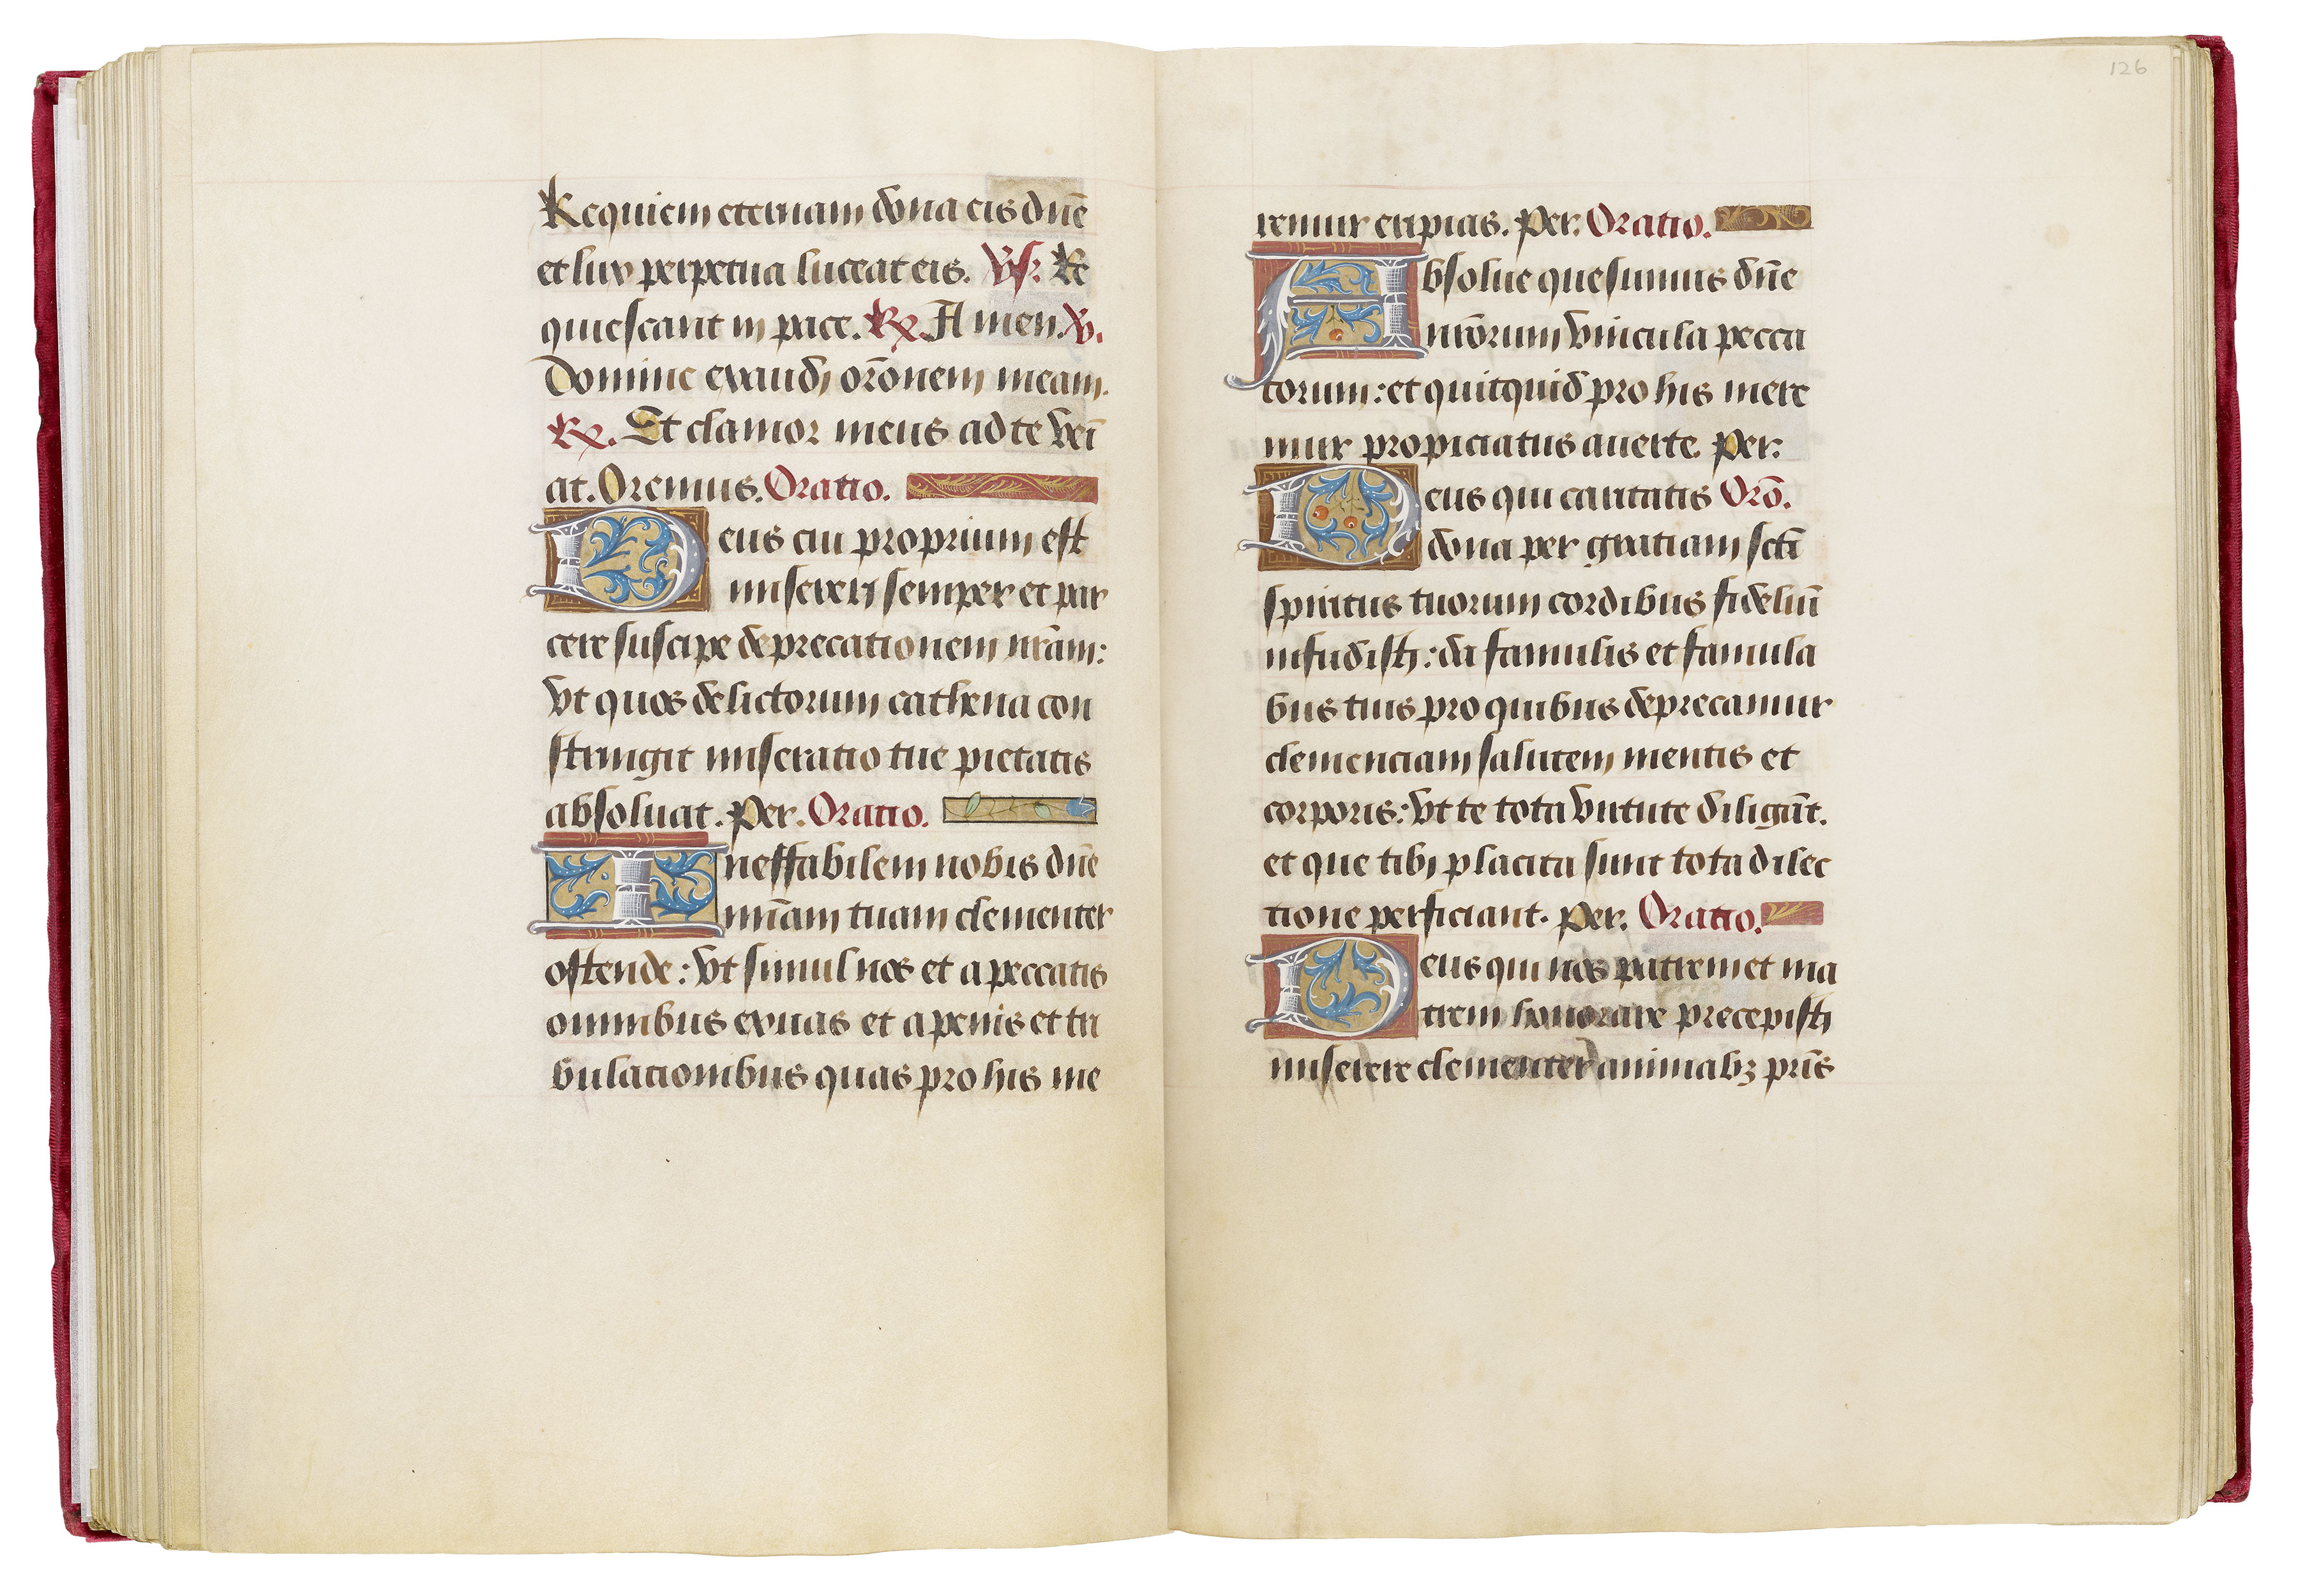 Requiem eternam dona eis dn̄e
et lux perpetua luceat eis. Vs: Re
quiescant in pace. R℣. Amen. V.
Domine exaudi orōnem meam.
R℣. Et clamor meus ad te veī
at. Oremus. Oratio.
Deus cui proprium est
misereri semper et par
cere suscipe deprecationem nrām:
vt quos delictorum cathena con
stringit miseratio tue pietatis
absoluat. Per. Oratio.
Ineffabilem nobis dn̄e
mīam tuam clementer
ostende: vt simul nos et a peccatis
omnibus exuas et a penis et tri
bulationibus quas pro his me
126
remur eripias. Per. Oratio.
Absolue quesumus dn̄e
nrōrum vincula pecca
torum: et quitquid pro his mere
mur propiciatus auerte. Per.
Deus qui caritatis Orō.
dona per gratiam sctī
spiritus tuorum cordibus fideliū
infudisti: da famulis et famula
bus tuis pro quibus deprecamur
clemenciam salutem mentis et
corporis: vt te tota virtute diligāt.
et que tibi placita sunt tota dilec
tione perficiant. Per. Oratio.
Deus qui nos patrem et ma
trem honorare precepisti
miserere clementer animabꝫ prīs